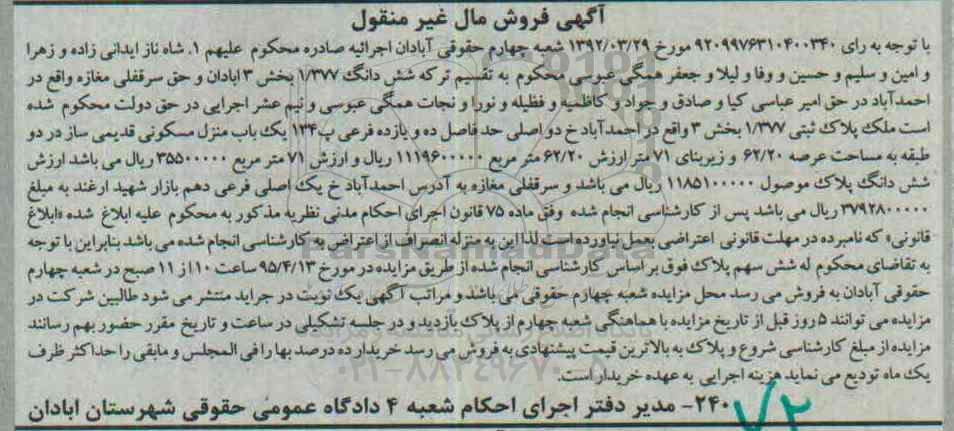 آگهی فروش مال غیر منقول
با توجه به رای ۹۲۰۹۹۷۶۳۱۰۴۰۰۳۴۰ مورخ ۱۳۹۲/۰۳/۲۹ شعبه چهارم حقوقی آبادان اجرائیه صادره محکوم علیهم ۱. شاه ناز ایدانی زاده و زهرا
و امین و سلیم و حسین و وفا و لیلا و جعفر همگی عبوسی محکوم به تقسیم ترکه شش دانگ ۱/۳۷۷ بخش ۳ ابادان و حق سرقفلی مغازه واقع در
احمدآباد در حق امیر عباسی کیا و صادق و جواد و کاظمیه و فظیله و نورا و نجات همگی عبوسی و نیم عشر اجرایی در حق دولت محکوم شده
است ملک پلاک ثبتی ۱/۳۷۷ بخش ۳ واقع در احمدآباد خ دو اصلی حد فاصل ده و یازده فرعی پ۱۳۴ یک باب منزل مسکونی قدیمی ساز در دو
طبقه به مساحت عرصه ۶۲/۲۰ و زیربنای ۷۱ متر ارزش ۶۲/۲۰ متر مربع ۱۱۱۹۶۰۰۰۰۰ ریال و ارزش ۷۱ متر مربع ۳۵۵۰۰۰۰۰ ریال می باشد ارزش
شش دانگ پلاک موصول ۱۱۸۵۱۰۰۰۰۰ ریال می باشد و سرقفلی مغازه به آدرس احمدآباد خ یک اصلی فرعی دهم بازار شهید ارغند به مبلغ
۳۷۹۲۸۰۰۰۰۰ ریال می باشد پس از کارشناسی انجام شده وفق ماده ۷۵ قانون اجرای احکام مدنی نظریه مذکور به محکوم علیه ابلاغ شده «ابلاغ
قانونی» که نامبرده در مهلت قانونی اعتراضی بعمل نیاورده است لذا این به منزله انصراف از اعتراض به کارشناسی انجام شده می باشد بنابراین با توجه
به تقاضای محکوم له شش سهم پلاک فوق بر اساس کارشناسی انجام شده از طریق مزایده در مورخ ۹۵/۴/۱۳ ساعت ۱۰ از ۱۱ صبح در شعبه چهارم
حقوقی آبادان به فروش می رسد محل مزایده شعبه چهارم حقوقی می باشد و مراتب آگهی یک نوبت در جراید منتشر می شود طالبین شرکت در
مزایده می توانند ۵ روز قبل از تاریخ مزایده با هماهنگی شعبه چهارم از پلاک بازدید و در جلسه تشکیلی در ساعت و تاریخ مقرر حضور بهم رسانند
مزایده از مبلغ کارشناسی شروع و پلاک به بالاترین قیمت پیشنهادی به فروش می رسد خریدار ده درصد بها را فی المجلس و مابقی را حداکثر ظرف
یک ماه تودیع می نماید هزینه اجرایی به عهده خریدار است.
۲۴۰- مدیر دفتر اجرای احکام شعبه ۴ دادگاه عمومی حقوقی شهرستان ابادان
۷۲
ParsNamadData
۰۲۱-۸۸۳۴۹۶۷۰